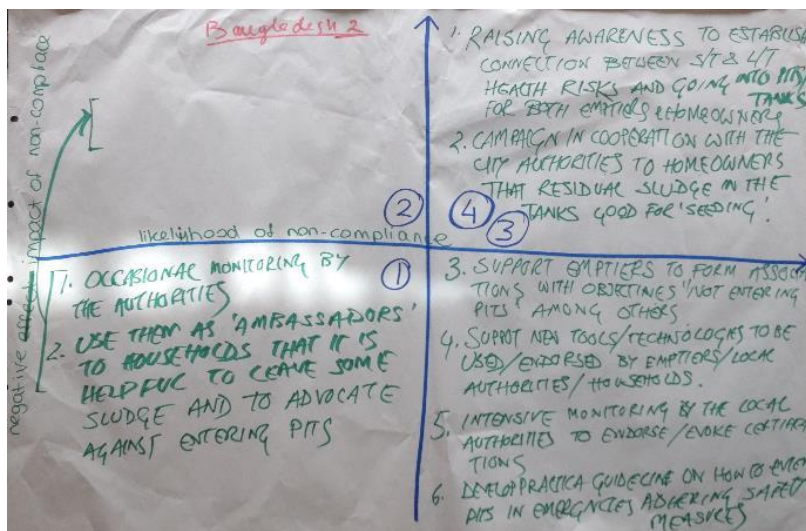 Bangladesh 2
negative affect, impact of non-compliace
likelyhood of non-compliance
2
4
3
1
1. RAISING AWARENESS TO ESTABLIS
CONNECTION BETWEEN S/T & L/T
HEALTH RISKS AND GOING INTO PITS/
TANKS
FOR BOTH EMPTIERS & HOMEOWNERS
2. CAMPAIGN IN COOPERATION WITH THE
CITY AUTHORITIES TO HOMEOWNERS
THAT RESIDUAL SLUDGE IN THE
TANKS GOOD FOR 'SEEDING'.
1. OCCASIONAL MONITORING BY
THE AUTHORITIES
2. USE THEM AS 'AMBASSADORS'
TO HOUSEHOLDS THAT IT IS
HELPFUL TO LEAVE SOME
SLUDGE AND TO ADVOCATE
AGAINST ENTERING PITS
3. SUPPORT EMPTIERS TO FORM ASSOCI
TIONS WITH OBJECTINES "NOT ENTERING
PITS" AMONG OTHERS
4. SUPPOT NEW TOOLS/TECHNOLOGIES TO BE
USED/ENDORSED BY EMPTIERS/LOCAL
AUTHORITIES/HOUSEHOLDS.
5. INTENSIVE MONITORING BY THE LOCAL
AUTHORITIES TO ENDORSE/EVOKE CERTIFICA
TIONS
6. DEVELOP PRACTICA GUIDELINE ON HOW TO ENTER
PITS IN EMERGNCIES ADHERING SAFETY
MEASURES